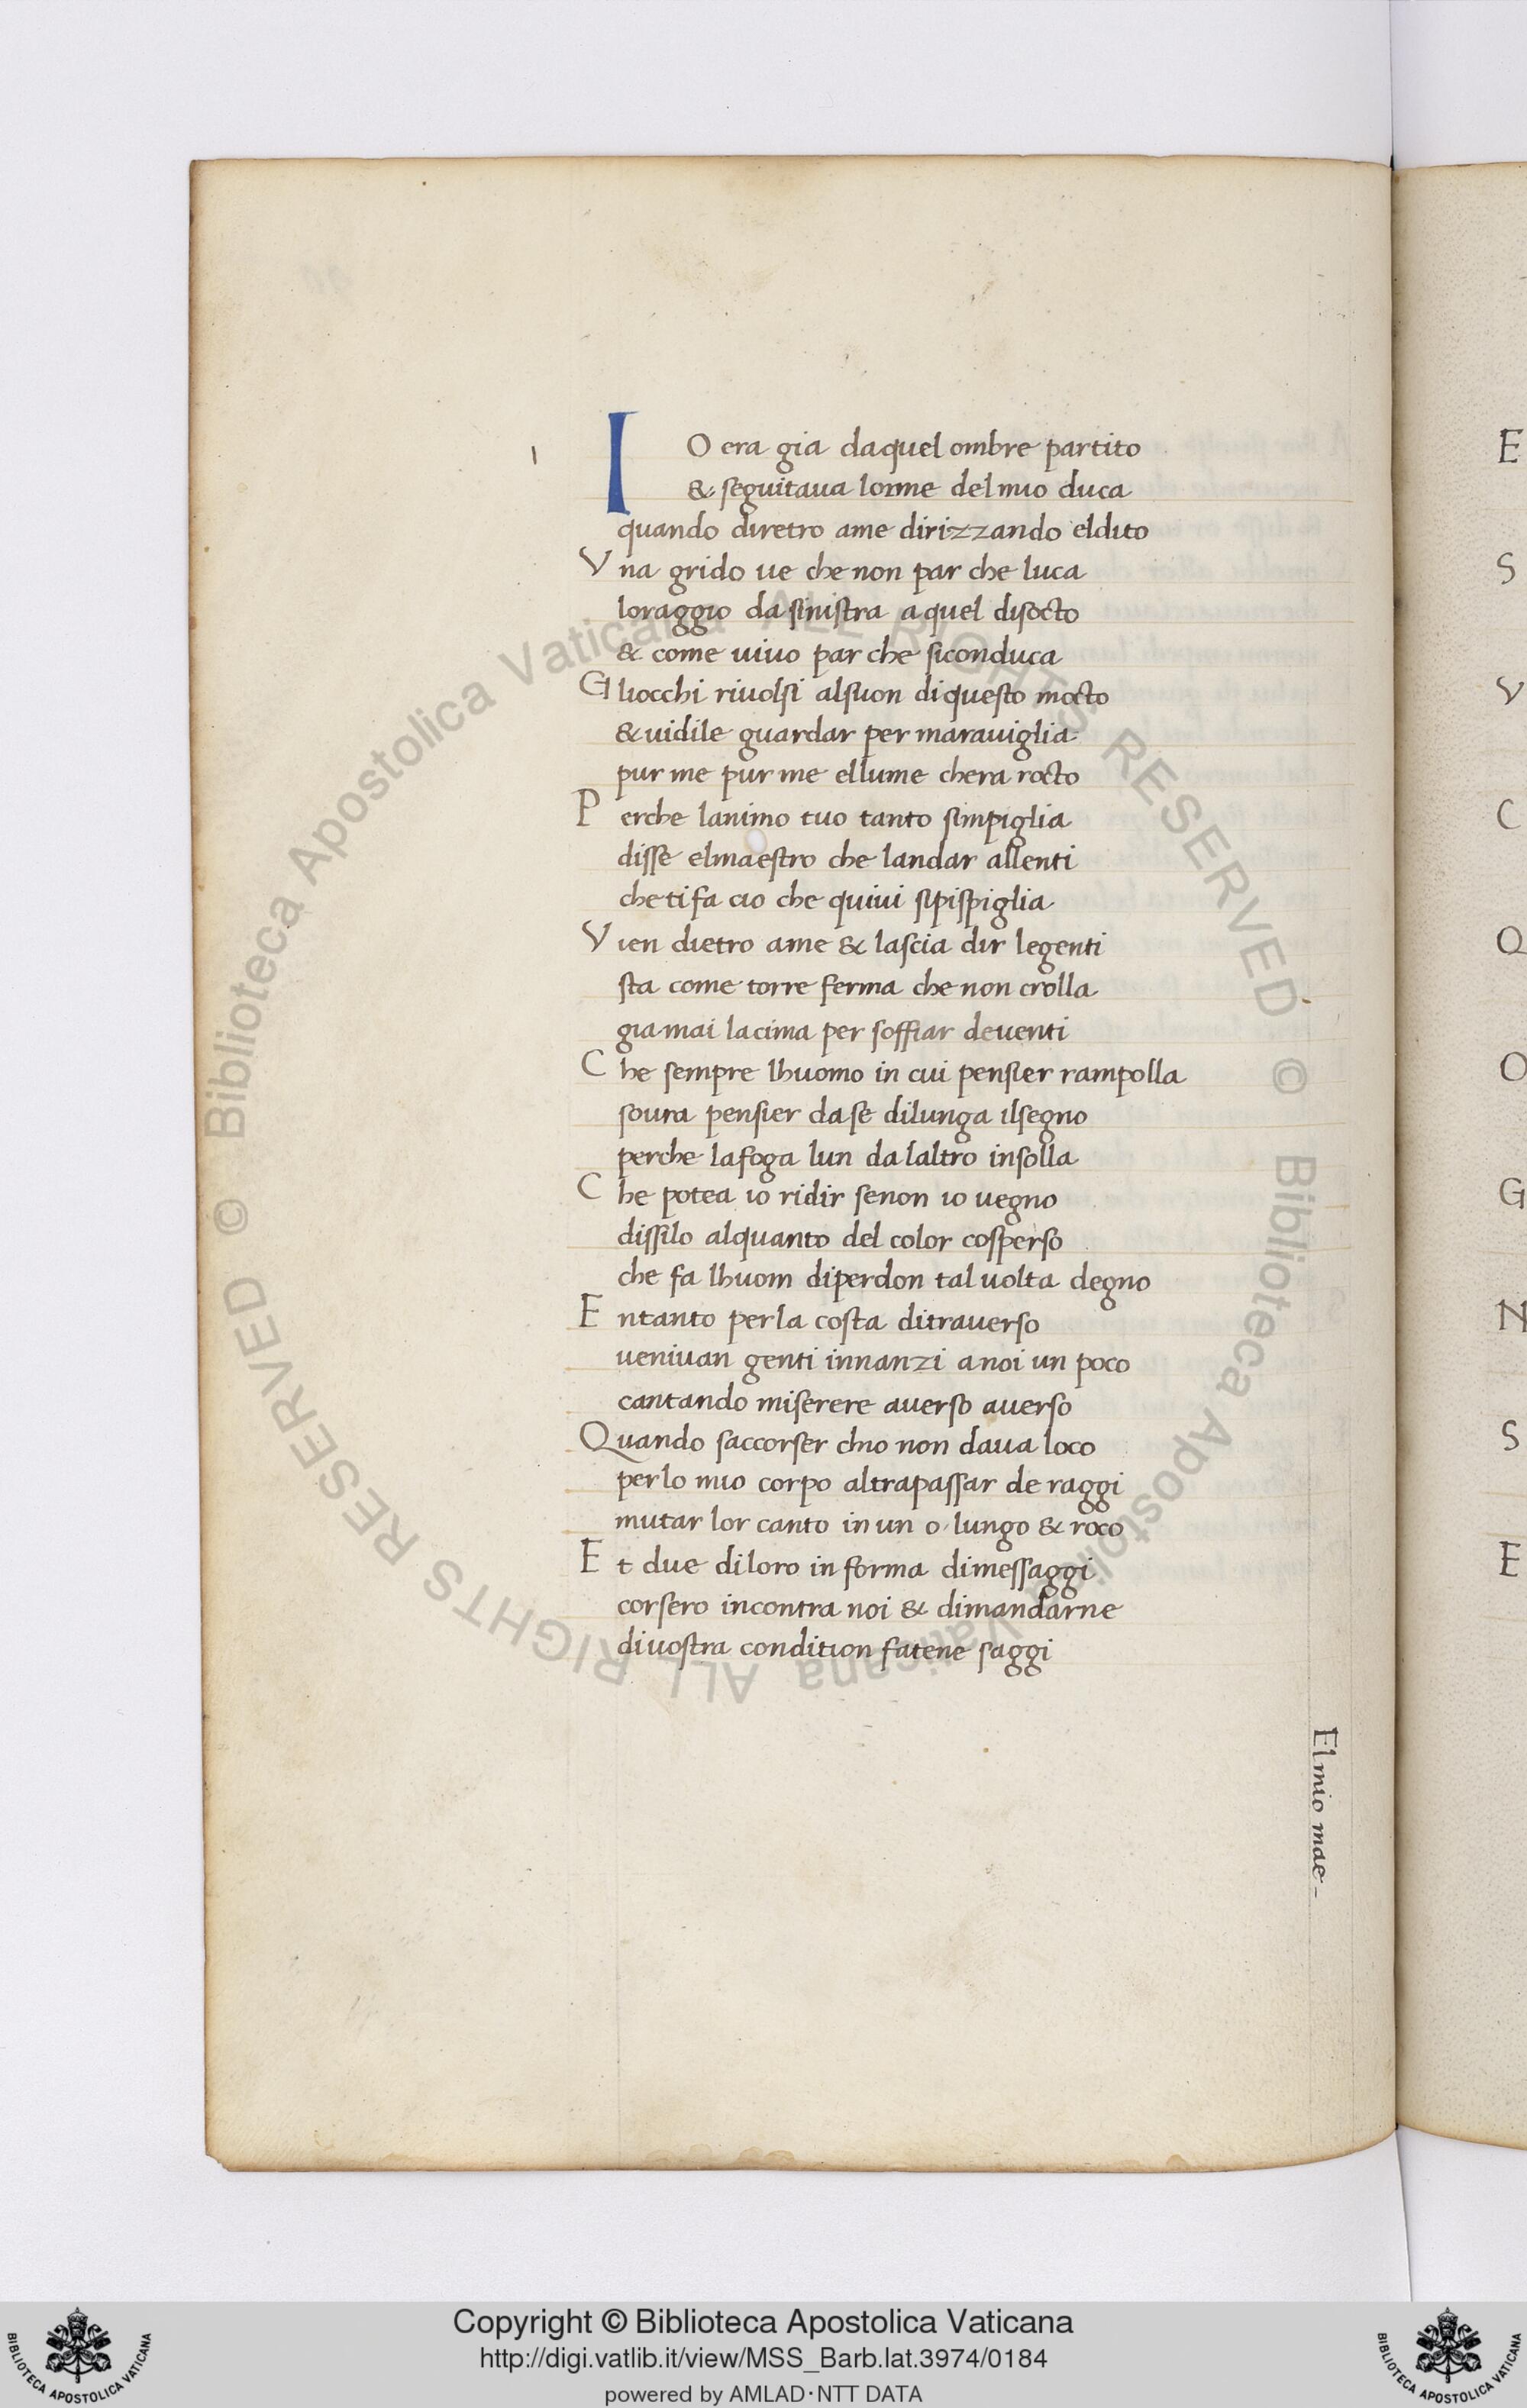 IO era gia daquel ombre partito
& seguitaua lorme del mio duca
quando diretro ame dirizzando eldito
Vna grido ue che non par che luca
loraggio da sinistra aquel disocto
& come uiuo par che siconduca
Gliocchi riuolsi alsuon diquesto mocto
& uidile guardar per marauiglia
pur me pur me ellume chera rocto
Perche lanimo tuo tanto simpiglia
disse elmaestro che landar allenti
che ti fa cio che quiui sipispiglia
Vien dietro ame & lascia dir legenti
sta come torre ferma che non crolla
gia mai lacima per soffiar deuenti
Che sempre lhuomo in cui pensier rampolla
soura pensier da se dilunga ilsegno
perche lafoga lun da laltro insolla
Che potea io ridir senon io uegno
dissilo alquanto del color cosperso
che fa lhuom diperdon tal uolta degno
Entanto perla costa ditrauerso
ueniuan genti innanzi anoi un poco
cantando miserere auerso auerso
Quando saccorser chio non daua loco
perlo mio corpo altrapassar de raggi
mutar lor canto in un o lungo & roco
Et due diloro in forma dimessaggi
corsero incontra noi & dimandarne
diuostra condition fatene saggi
El mio mae-
E
S
V
C
Q
O
G
N
S
E
© Biblioteca Apostolica Vaticana ALL RIGHTS RESERVED
© Biblioteca Apostolica Vaticana ALL RIGHTS RESERVED
Copyright © Biblioteca Apostolica Vaticana
http://digi.vatlib.it/view/MSS_Barb.lat.3974/0184
powered by AMLAD·NTT DATA
BIBLIOTECA APOSTOLICA VATICANA
BIBLIOTECA APOSTOLICA VATICANA